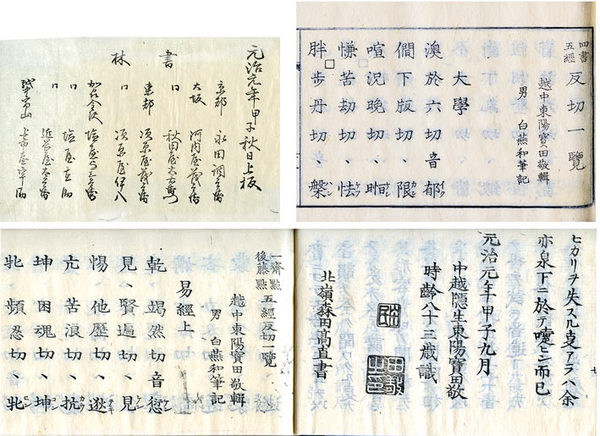 元治元年甲子秋日上板
書林
京都 永田調兵衛
大坂 河内屋茂兵衛
口 秋田屋太右衛門
東都 須原屋茂兵衛
口 須原屋伊八
加州金沢 塩屋与三兵衛
口 塩屋直助
口 近岡屋太兵衛
四書五經 反切一覽
越中東陽寶田敬輯
男 白燕和筆記
大學
澳於六切音郁
僩下版切、限
喧況晚切、晅
慊苦劫切、怯
胖步丹切、槃
ヒカリヲ失スル支アラハ余
亦泉下ニ於テ嚏セン而已
元治元年甲子九月
中越隱生東陽寶田敬
時齡八十三歳識
北嶺森田髙直書
一齋點後藤點 五經反切一覽
越中東陽寶田敬輯
男 白燕和筆記
易經上
乾、竭然切音愆
見、賢遍切、見
惕、他歷切、逖
亢、苦浪切、抗
坤、困魂切、坤
牝、頻忍切、牝